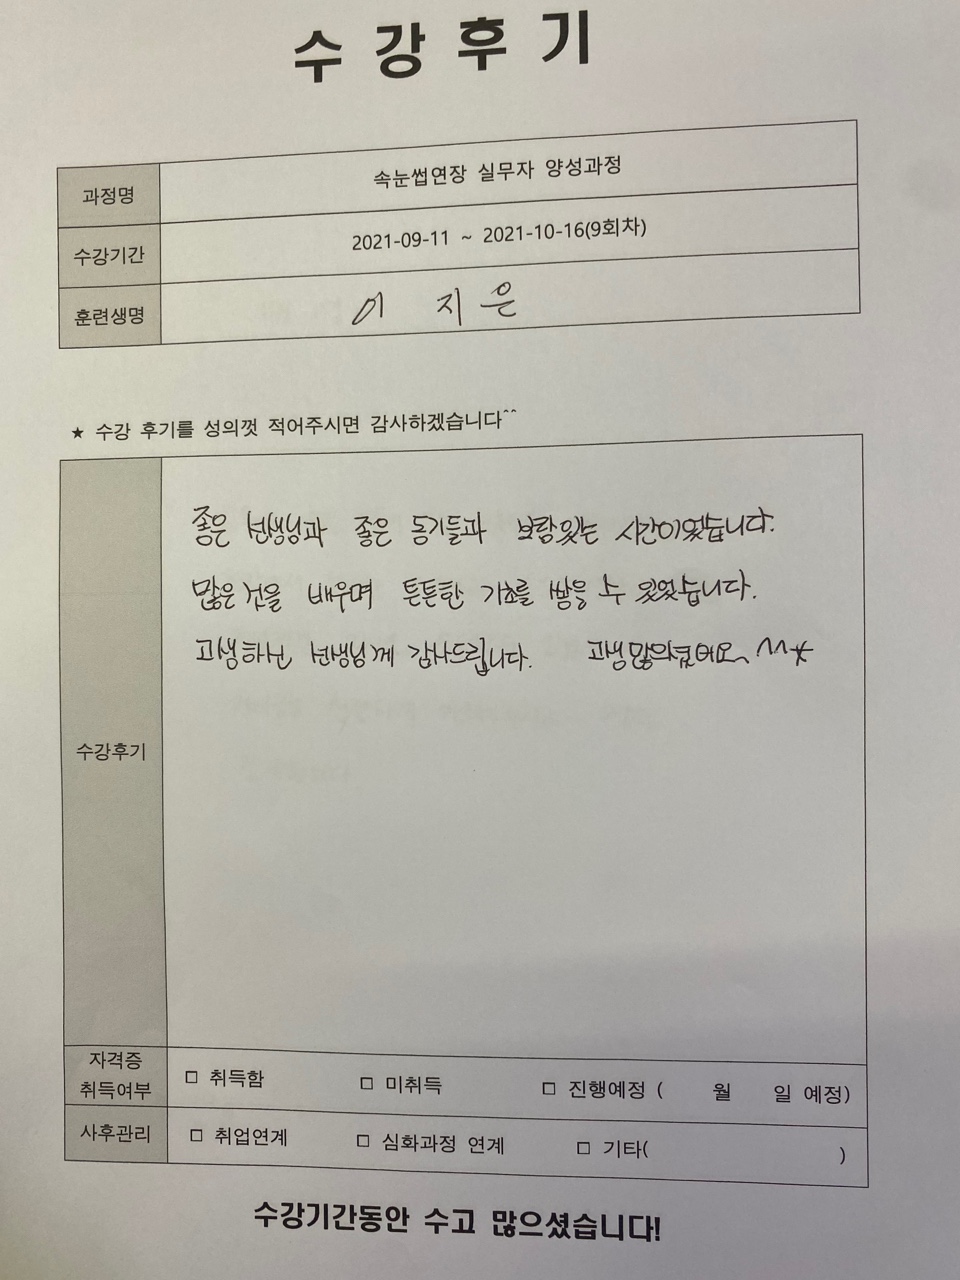 수강후기
과정명 속눈썹연장 실무자 양성과정
수강기간 2021-09-11 ~ 2021-10-16(9회차)
훈련생명 이 지 은
★ 수강 후기를 성의껏 적어주시면 감사하겠습니다^^
수강후기
좋은 선생님과 좋은 동기들과 보람있는 시간이였습니다.
많은 것을 배우며 튼튼한 기초를 쌓을 수 있었습니다.
고생하신 선생님께 감사드립니다. 고생많으셨어요~ ^^★
자격증 취득여부 □ 취득함 □ 미취득 □ 진행예정 ( 월 일 예정)
사후관리 □ 취업연계 □ 심화과정 연계 □ 기타( )
수강기간동안 수고 많으셨습니다!